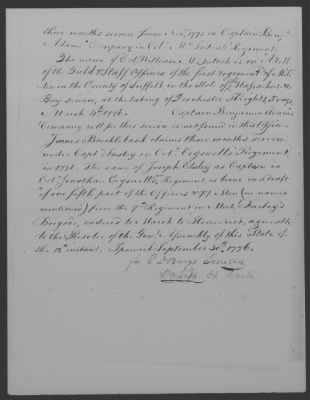 three months service from Nov. 1775 in Captain Benj.
Adams' Company in Col. McIntosh Regiment.
The name of Col. William McIntosh is on a Roll
of the Field & Staff Officers of the first regiment of Mil-
itia in the County of Suffolk, in the State of Massachusetts
Bay service, at the taking of Dorchester Heights 5 days
March 4th 1776. Captain Benjamin Adams
Company roll for this service is not found in this Office
James Brocklebank claims three months service
under Capt in Col. Cogswells Regiment,
in 1776. The name of Joseph as Captain in
Col. Jonathan Cogswells Regiment, is borne on a draft
of one fifth part of the Officers & 77 Men (no names
mentioned) from the 7th Regiment in Mich. Farley's
Brigade, ordered to March to Horse neck, agreeable
to the Resolve of the Genl. Assembly of this State of
the 12th instant. Ipswich September 30th 1776.
for E. D. Bangs Secretary
Clerk